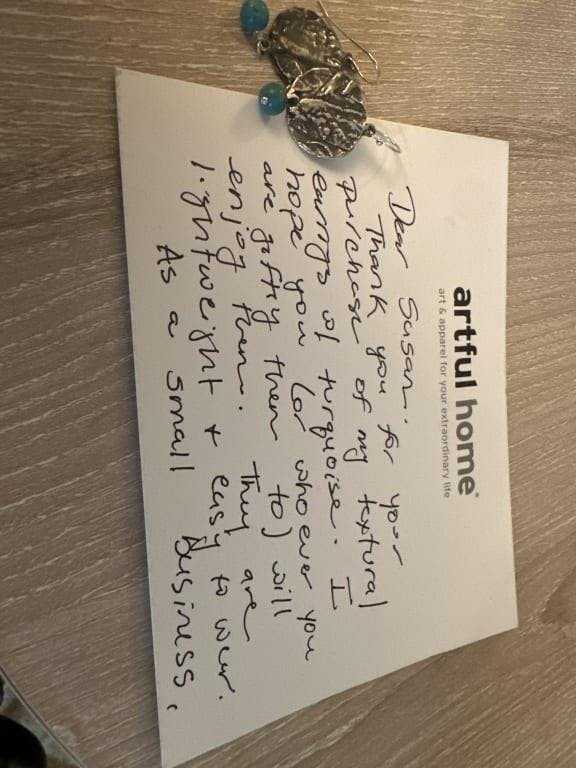 artful home®
art & apparel for your extraordinary life
Dear Susan,
Thank you for your
purchase of my textural
earrgs w/ turquoise. I
hope you (or whoever you
are gifty them to) will
enjoy them. They are
lightweight + easy to wear.
As a small business,